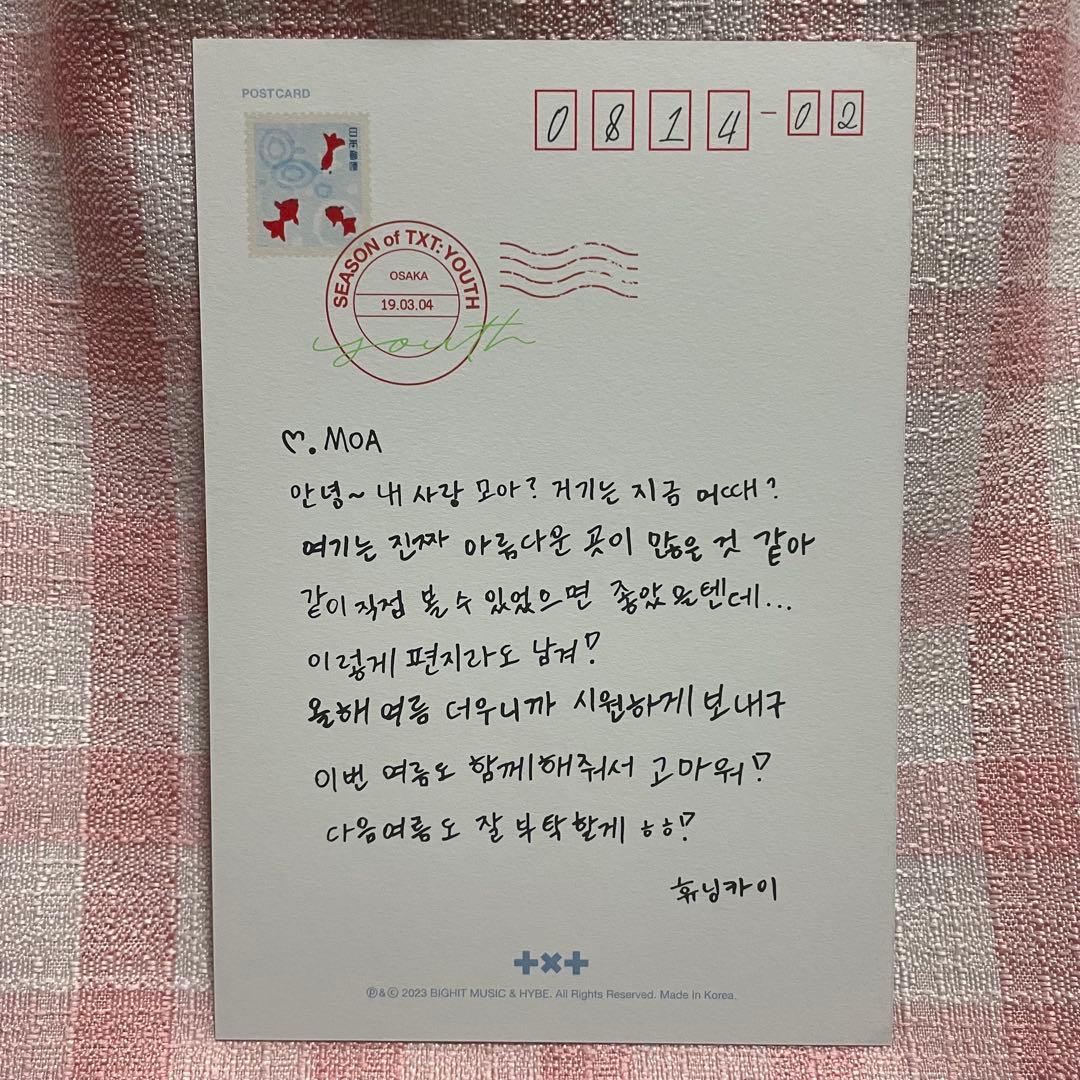 POSTCARD
0814-02
日本郵便
SEASON of TXT: YOUTH
OSAKA
19.03.04
youth
♡. MOA
안녕~ 내 사랑 모아? 거기는 지금 어때?
여기는 진짜 아름다운 곳이 많은 것 같아
같이 직접 볼 수 있었으면 좋았을텐데...
이렇게 편지라도 남겨!
올해 여름 더우니까 시원하게 보내구
이번 여름도 함께해줘서 고마워!
다음여름도 잘 부탁할게 ㅎㅎ!
휴닝카이
+×+
Ⓟ&© 2023 BIGHIT MUSIC & HYBE. All Rights Reserved. Made in Korea.